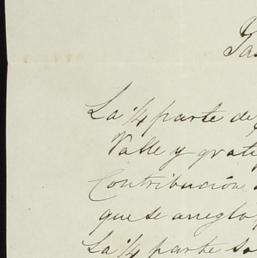 La ¼ parte de
Valle y grati
Contribucion
que se arreglo
La ¼ parte so